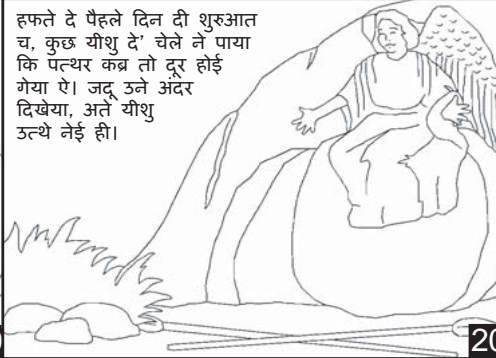 हफते दे पैहले दिन दी शुरुआत
च, कुछ यीशु दे’ चेले ने पाया
कि पत्थर कब्र तो दूर होई
गेया ऐ। जदू उने अंदर
दिखेया, अते यीशु
उत्थे नेई ही।
20